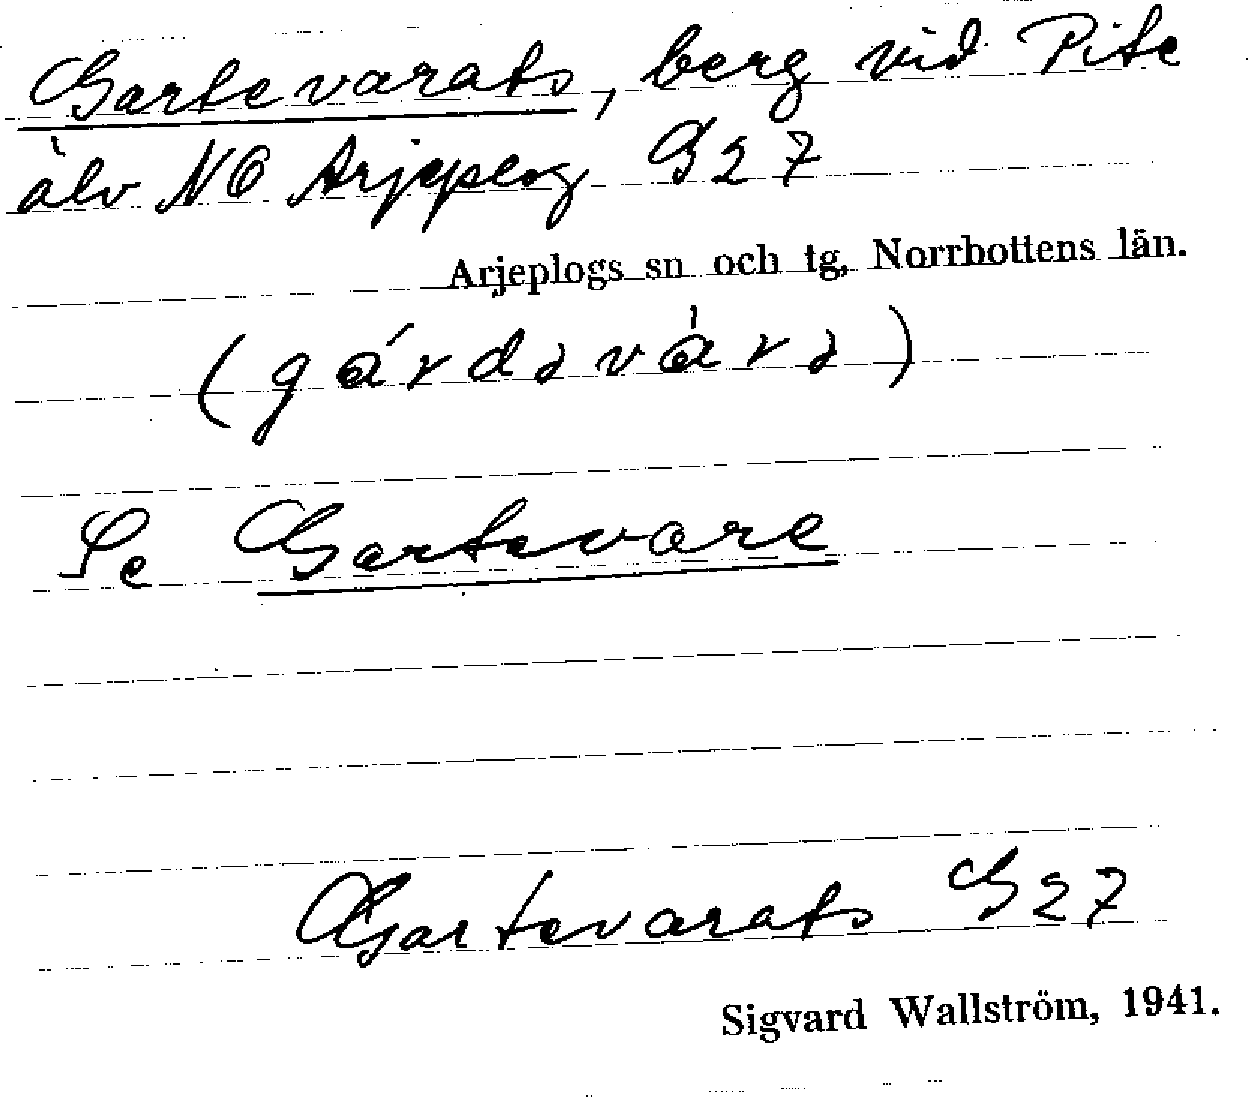 Gartevarats, berg vid Pite
älv NO Arjeplog G27
Arjeplogs sn och tg, Norrbottens län.
(gárdəvárə)
Se Gartevare
Gartevarats G27
Sigvard Wallström, 1941.